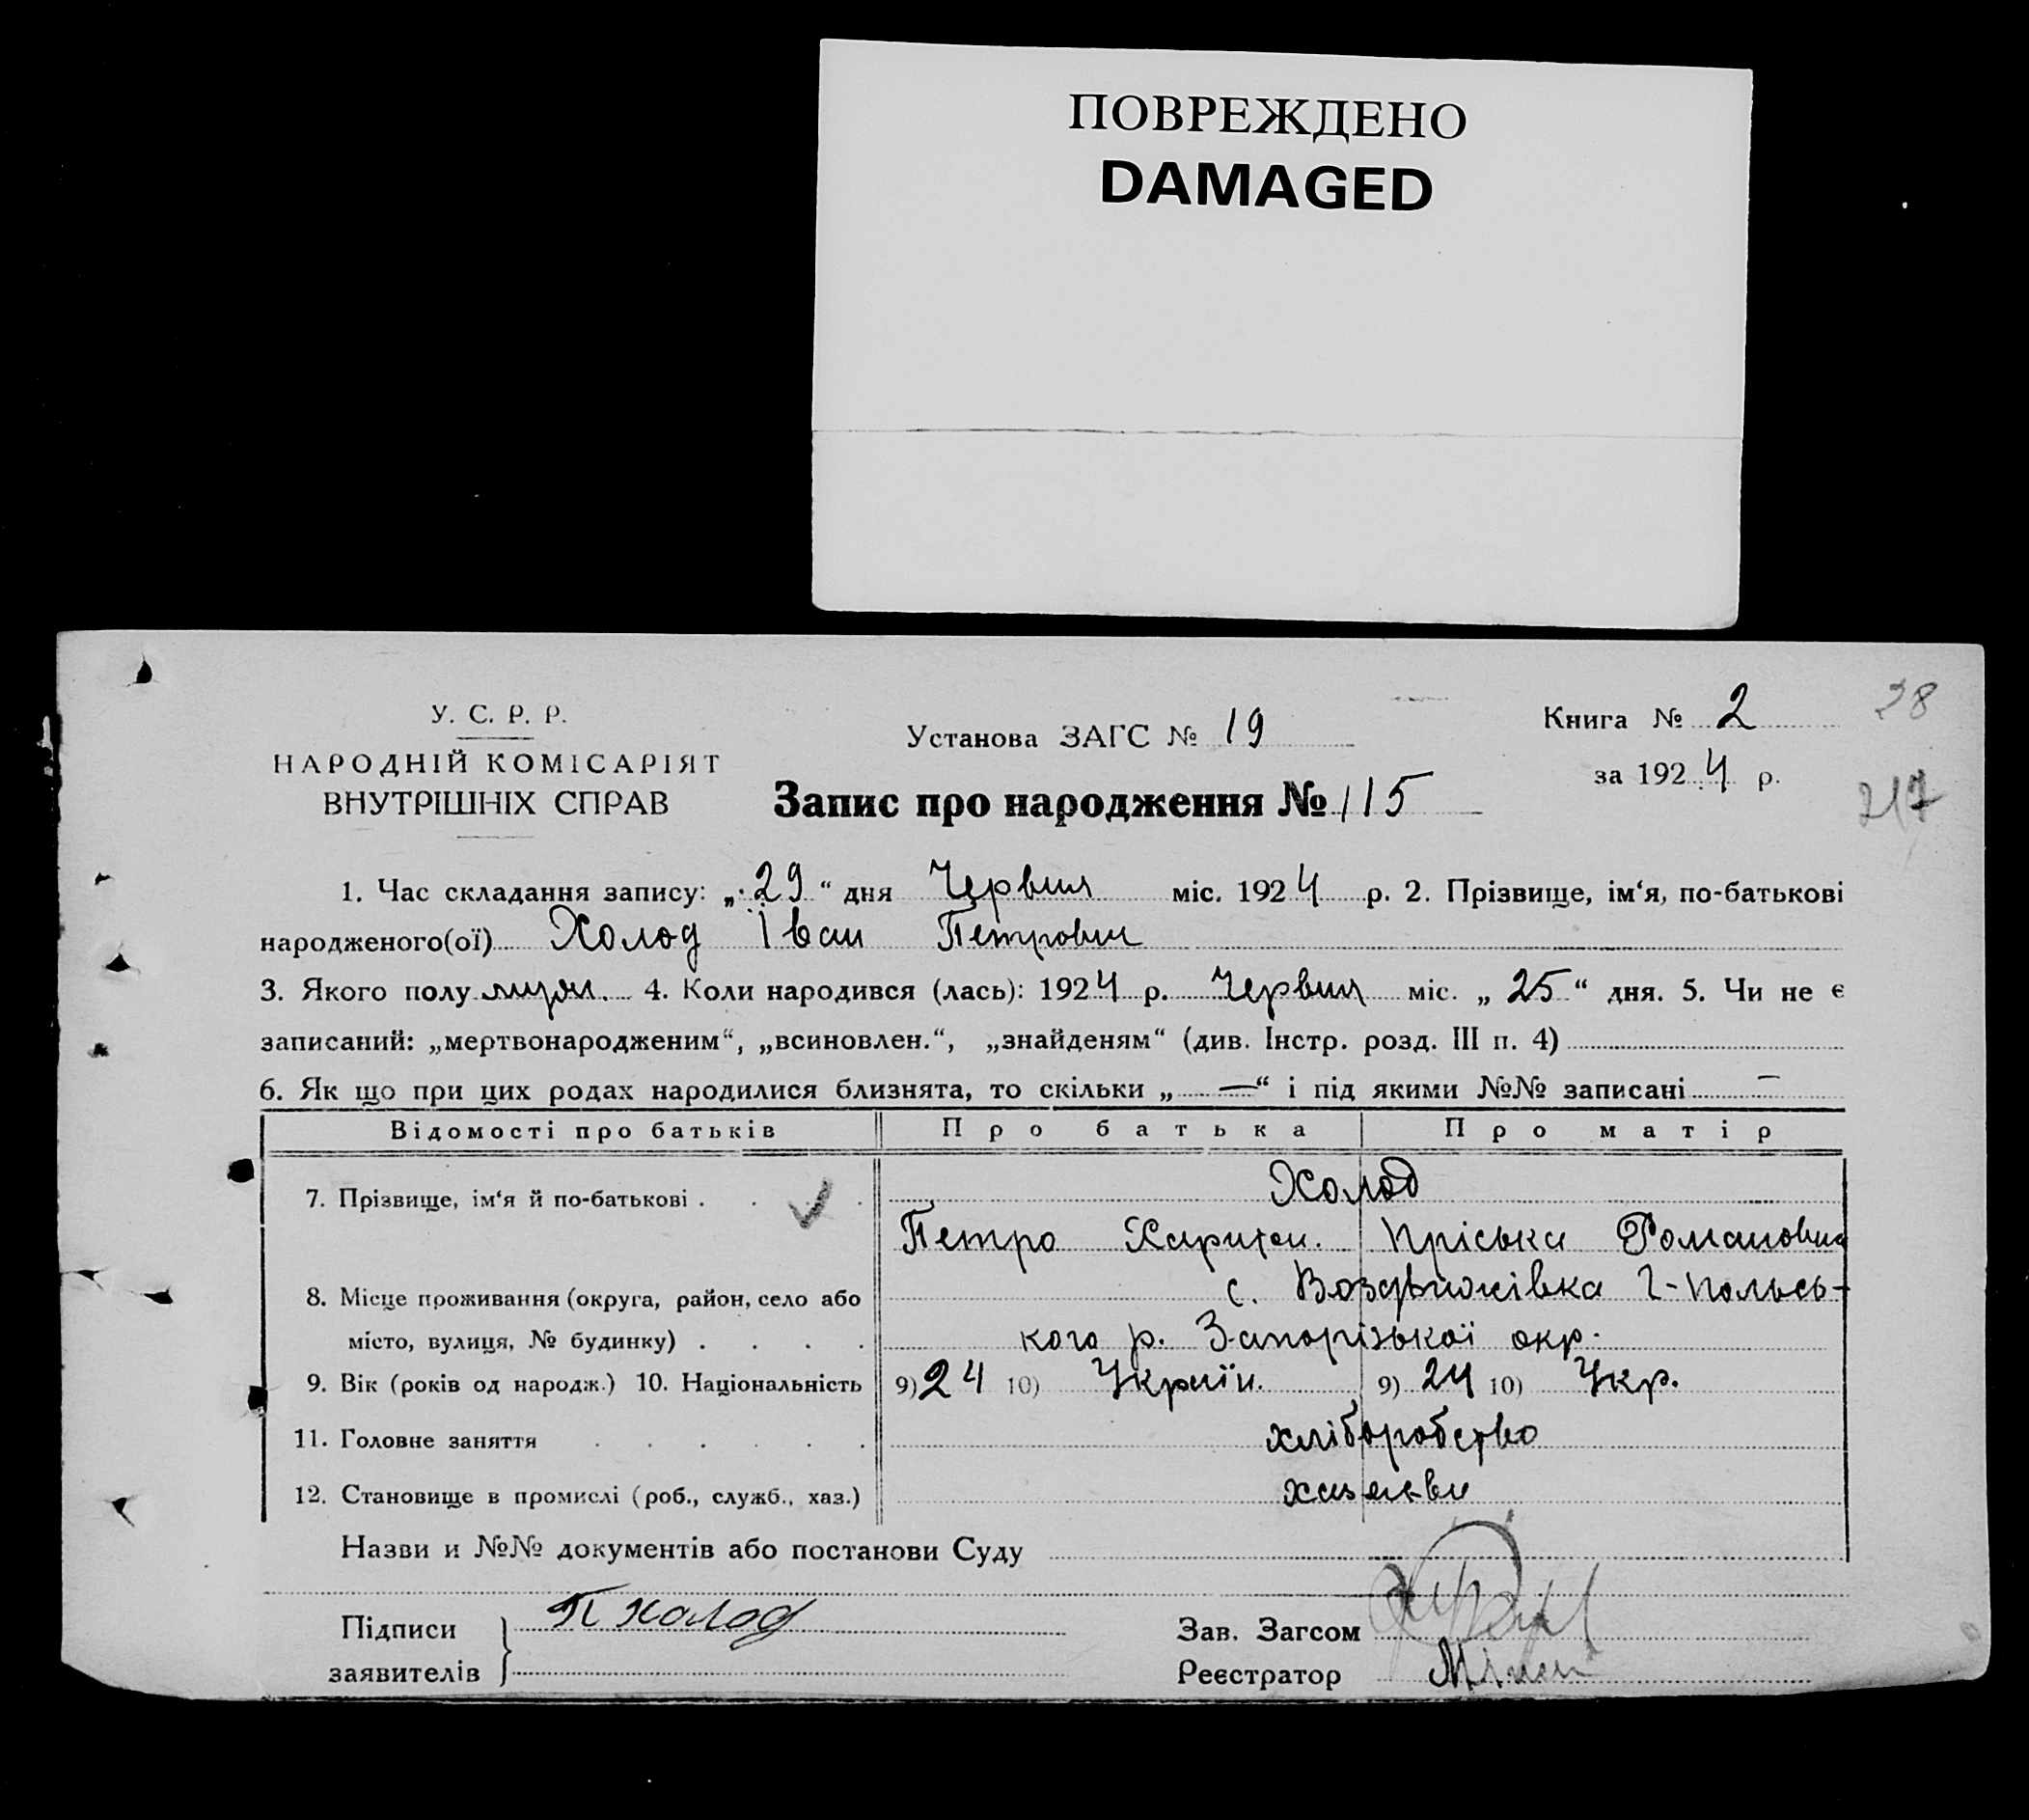 ПОВРЕЖДЕНО
DAMAGED
У. С. Р. Р.
НАРОДНІЙ КОМІСАРІЯТ
ВНУТРІШНІХ СПРАВ
Установа ЗАГС № 19
Запис про народження № 115
Книга № 2
28
за 1924 р.
217
1. Час складання запису: „29“ дня Червня міс. 1924 р. 2. Прізвище, ім‘я, по-батькові
народженого(ої) Холод Іван Петрович
3. Якого полу муж. 4. Коли народився (лась): 1924 р. Червня міс. „25“ дня. 5. Чи не є
записаний: „мертвонародженим“, „всиновлен.“, „знайденям“ (див. Інстр. розд. III п. 4)
6. Як що при цих родах народилися близнята, то скільки „—“ і під якими №№ записані —
Відомості про батьків Про батька Про матір
7. Прізвище, ім‘я й по-батькові . . . . Холод
Петро Харитон. Пріська Романовна
8. Місце проживання (округа, район, село або с. Воздвижівка Г-Польсь-
місто, вулиця, № будинку) . . . . кого р. Запорізької окр.
9. Вік (років од народж.) 10. Національність 9) 24 10) Україн. 9) 24 10) Укр.
11. Головне заняття . . . . . . хліборобство
12. Становище в промислі (роб., служб., хаз.) хазяєви
Назви и №№ документів або постанови Суду
Підписи П Холод
заявителів
Зав. Загсом
Реєстратор